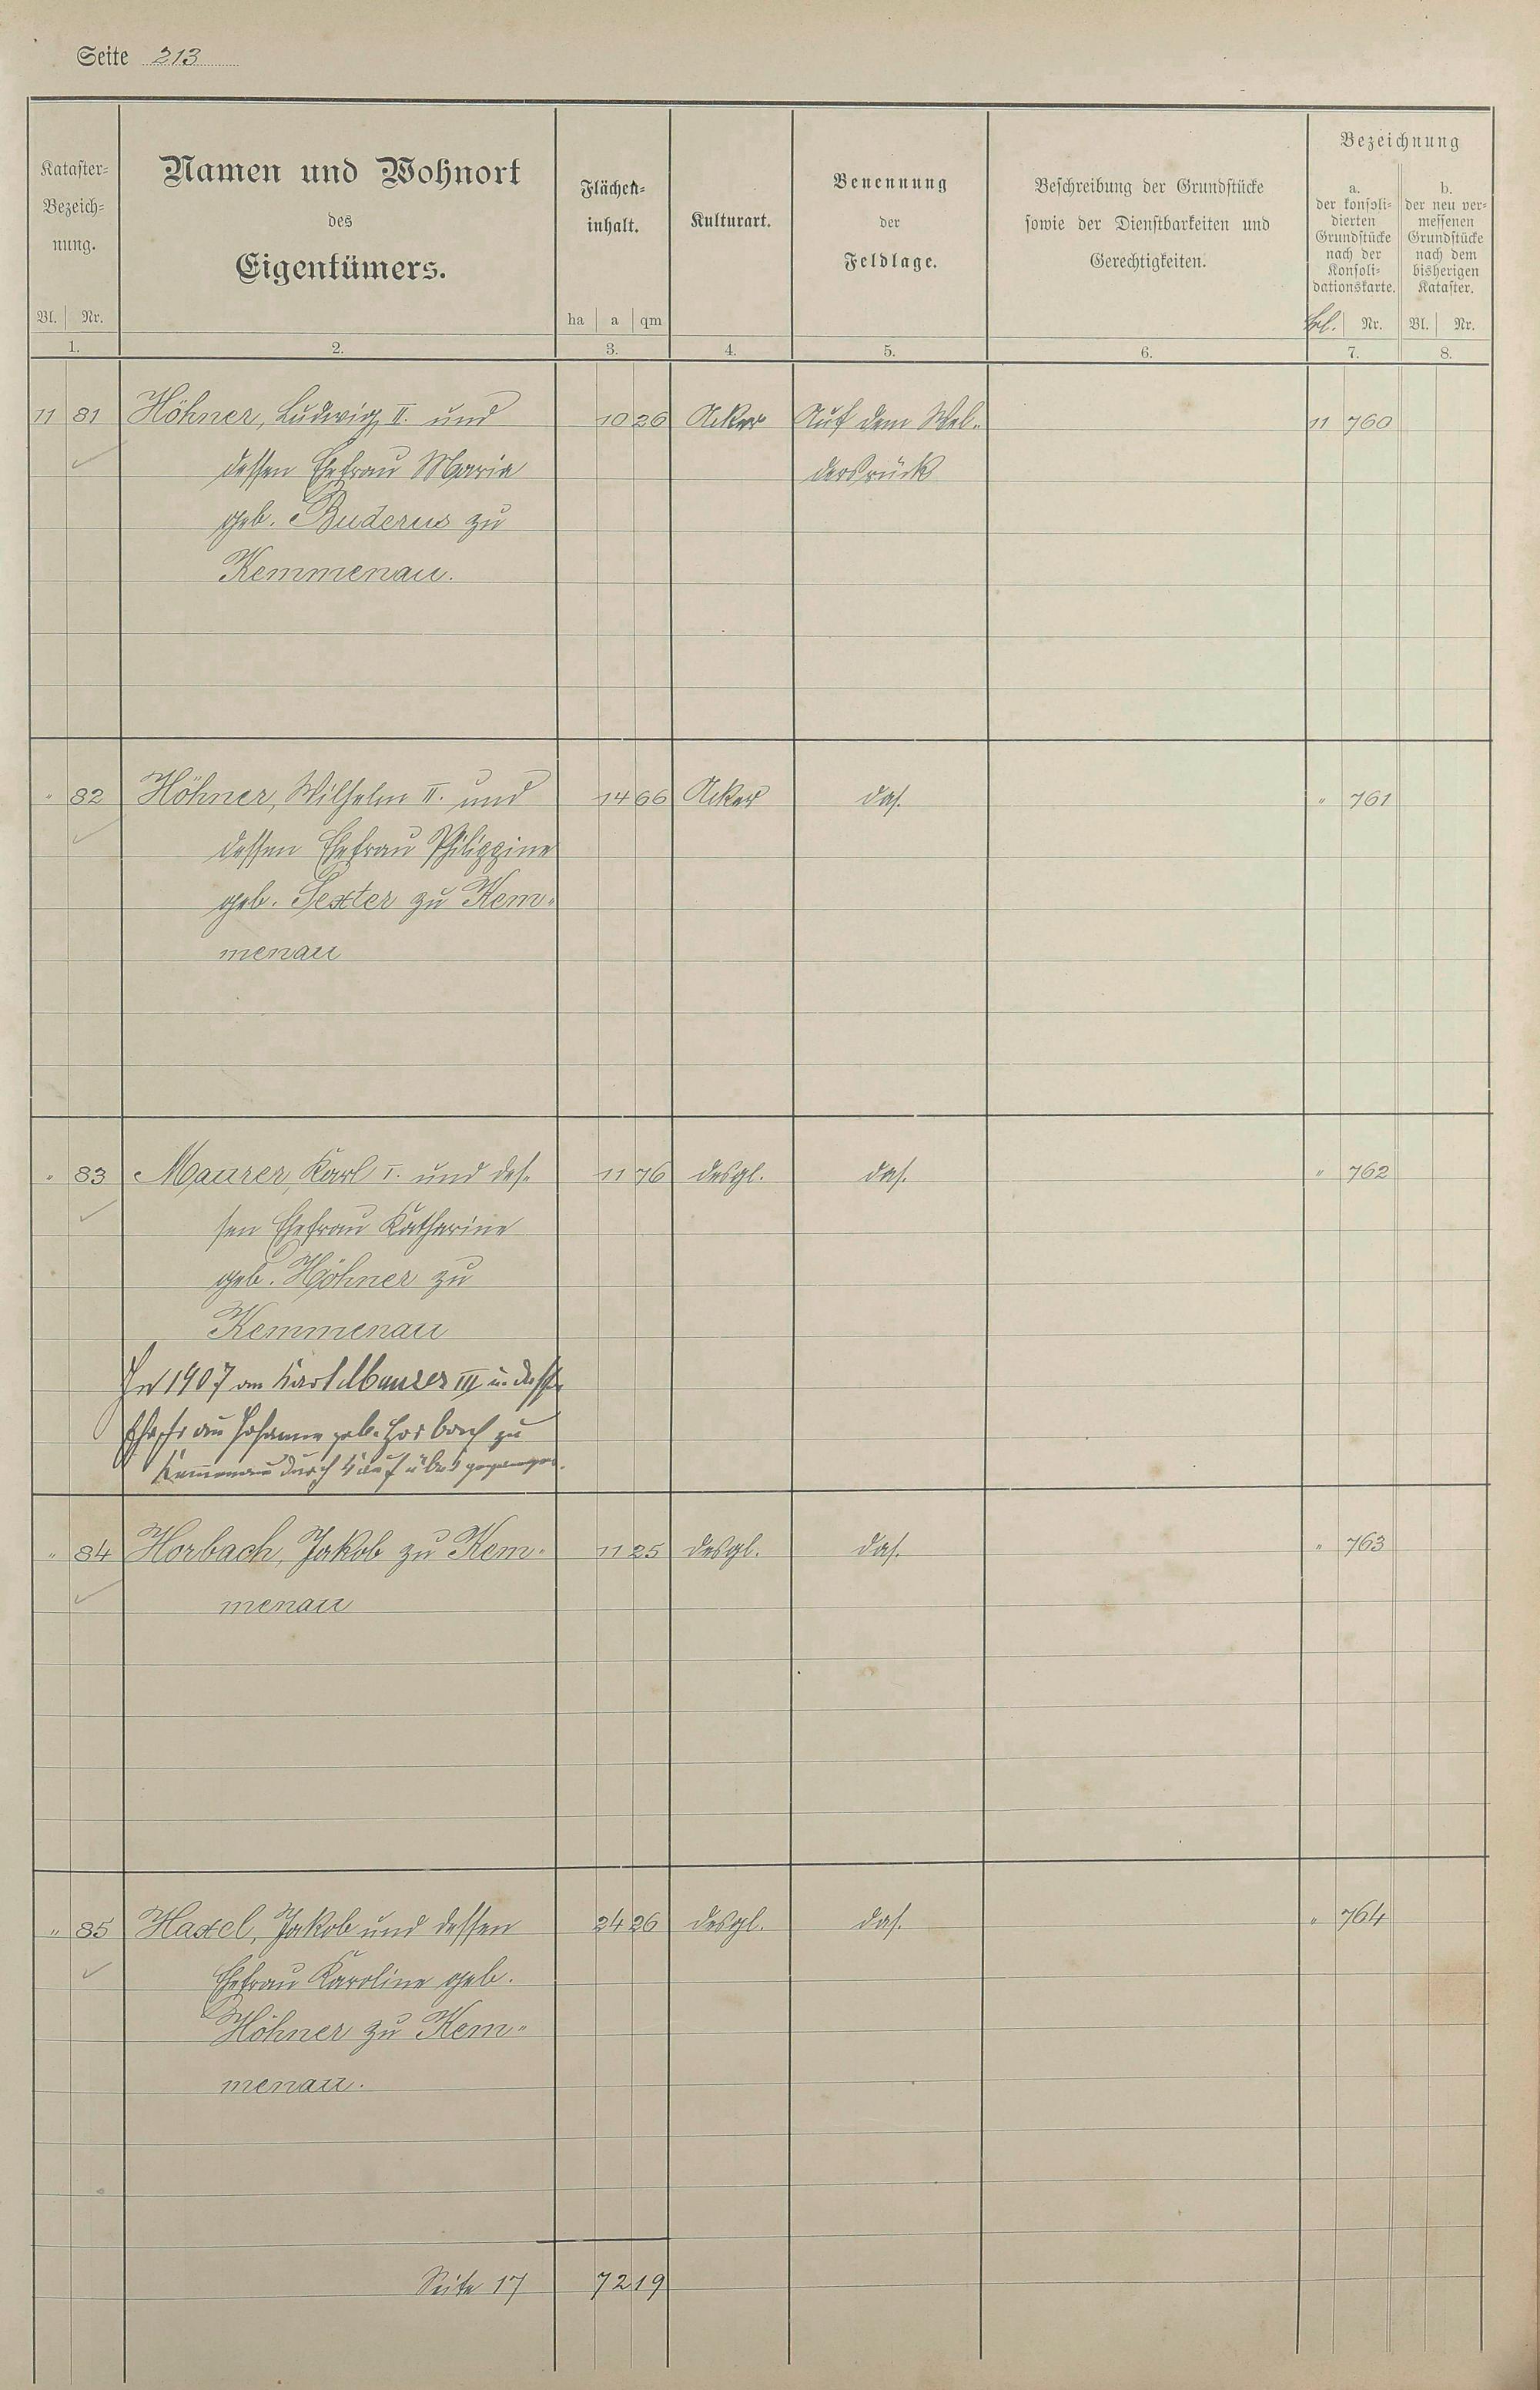 Seite 213
Kataster-
Bezeich-
nung.
Bl. Nr.
1.
Namen und Wohnort
des
Eigentümers.
2.
Flächen-
inhalt.
ha a qm
3.
Kulturart.
4.
Benennung
der
Feldlage.
5.
Beschreibung der Grundstücke
sowie der Dienstbarkeiten und
Gerechtigkeiten.
6.
Bezeichnung
a.
der konsoli-
dierten
Grundstücke
nach der
Konsoli-
dationskarte.
Nr.
7.
b.
der neu ver-
messenen
Grundstücke
nach dem
bisherigen
Kataster.
Bl. Nr.
8.
11 81 Höhner, Ludwig II. und 10 26 Acker Auf dem Wel- 11 760
dessen Ehefrau Maria dersrück
geb. Buderus zu
Kemmenau.
" 82 Höhner, Wilhelm II. und 14 66 Acker das. " 761
dessen Ehefrau Philippine
geb. Sexter zu Kem-
menau
" 83 Maurer, Karl I. und des- 11 76 desgl. das. " 762
sen Ehefrau Katharine
geb. Höhner zu
Kemmenau
In 1907 an Karl Maurer III u. dessen
Ehefrau Johanne geb. Horbach zu
Kemmenau durch Kauf übergegangen.
" 84 Horbach, Jakob zu Kem- 11 25 desgl. das. " 763
menau
" 85 Haxel, Jakob und dessen 24 26 desgl. das. " 764
Ehefrau Karoline geb.
Höhner zu Kem-
menau.
Seite 17 72 19